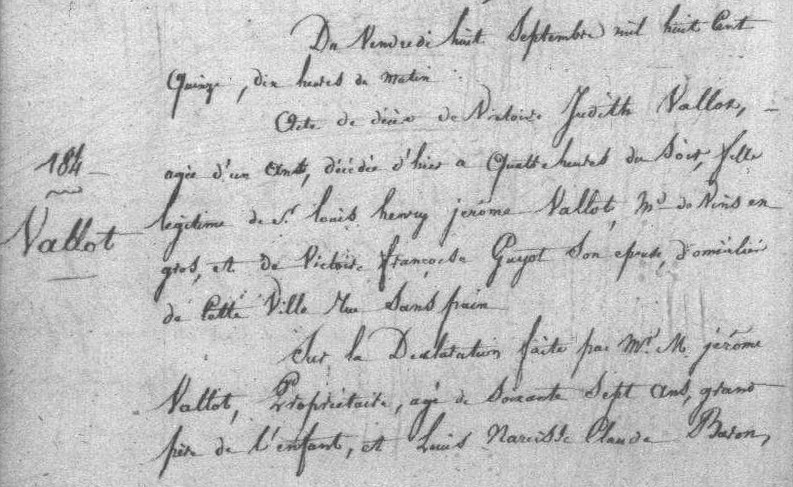 Du Vendredi huit Septembre mil huit Cent
Quinze, dix heures du matin
Acte de décès de Victoire Judith Vallot,
184
agée d'un ans, décédée d'hier a Quatre heures du Soir, fille
Vallot
légitime de Sr. louis henry jerôme Vallot, Md. de Vins en
gros, et de Victoire françoise Guyot Son epouse, domicilié
de Cette Ville Rue Sans pain
Sur la Declaration faite par Mr. M. jerôme
Vallot, Propriétaire, agé de Soixante Sept Ans, grand
père de l'enfant, et Louis Narcisse Claude Baron,